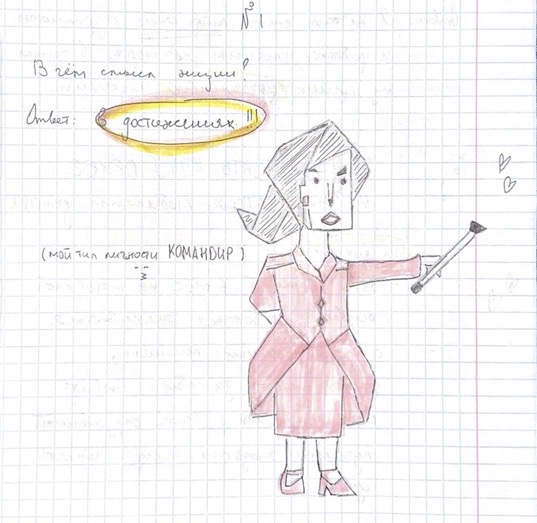 №1
В чём смысл жизни?
Ответ: в достижениях!!!
(мой тип личности КОМАНДИР)